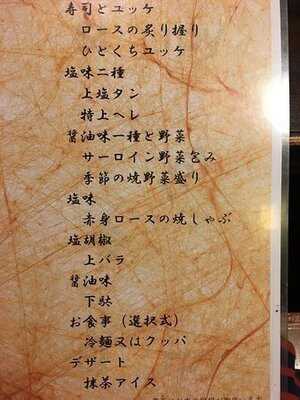 寿司とユッケ
ロースの炙り握り
ひとくちユッケ
塩味二種
上塩タン
特上ヘレ
醤油味一種と野菜
サーロイン野菜包み
季節の焼野菜盛り
塩味
赤身ロースの焼しゃぶ
塩胡椒
上バラ
醤油味
下駄
お食事（選択式）
冷麺又はクッパ
デザート
抹茶アイス